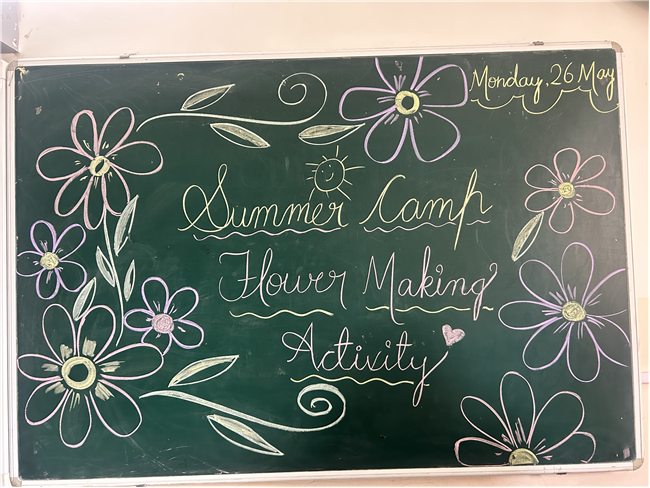 Monday, 26 May
Summer Camp
Flower Making
Activity